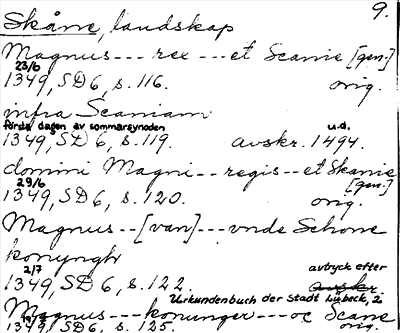 9.
Skåne, landskap
Magnus --- rex --- et Scanie [gen.]
23/6
1349, SD 6, s. 116. orig.
infra Scaniam
första dagen av sommarsynoden u.d.
1349, SD 6, s. 119. avskr. 1494.
domini Magni -- regis -- et Skanie
29/6 [gen.]
1349, SD 6, s. 120. orig.
Magnus -- [van] --- vnde Schone
konyngh
2/7 avtryck efter
1349, SD 6, s. 122. avskr.
Urkundenbuch der Stadt Lübeck, 2
Magnus --- konunger --- oc Scane
1349, SD 6, s. 125. orig.